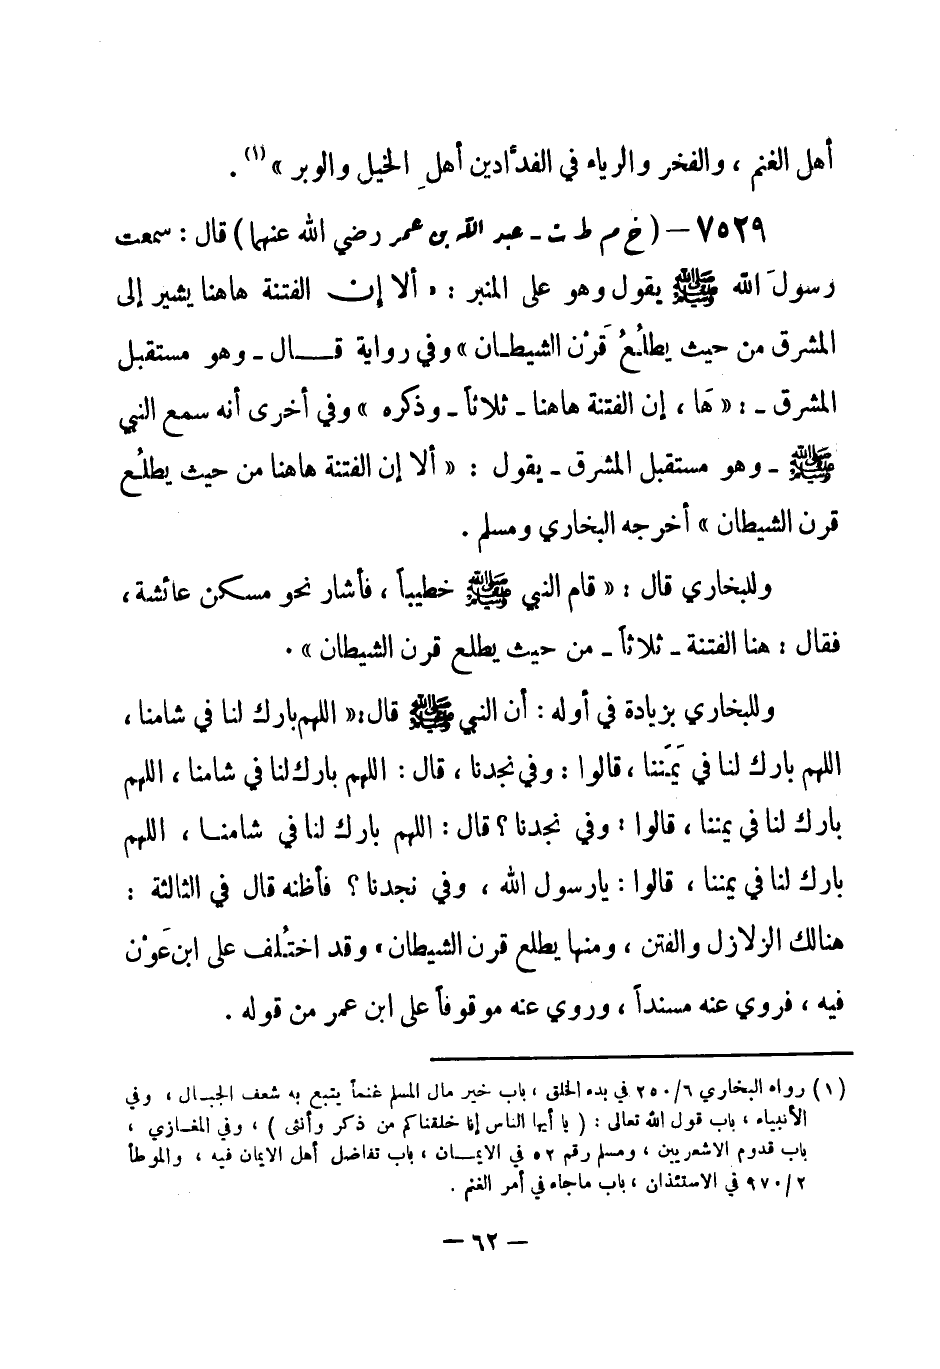 أهل الغنم ، والفخر والرياء في الفدَّادين أهلِ الخيل والوبر » (١) .
٧٥٢٩ – ( خ م ط ت ـ عبد الله بن عمر رضي الله عنهما ) قال : سمعت
رسولَ الله ﷺ يقول وهو على المنبر : « ألا إن الفتنة هاهنا يشير إلى
المشرق من حيث يطلُعُ قَرْن الشيطان » وفي رواية قال ـ وهو مستقبل
المشرق ـ : « هَا ، إن الفتنة هاهنا ـ ثلاثاً ـ وذكره » وفي أخرى أنه سمع النبي
ﷺ ـ وهو مستقبل المشرق ـ يقول : « ألا إن الفتنة هاهنا من حيث يطلُع
قرن الشيطان » أخرجه البخاري ومسلم .
وللبخاري قال : « قام النبي ﷺ خطيباً ، فأشار نحو مسكن عائشة ،
فقال : هنا الفتنة ـ ثلاثاً ـ من حيث يطلع قرن الشيطان » .
وللبخاري بزيادة في أوله : أن النبي ﷺ قال : « اللهم بارك لنا في شامنا ،
اللهم بارك لنا في يَمَننا ، قالوا : وفي نجدنا ، قال : اللهم بارك لنا في شامنا ، اللهم
بارك لنا في يمننا ، قالوا : وفي نجدنا ؟ قال : اللهم بارك لنا في شامنا ، اللهم
بارك لنا في يمننا ، قالوا : يارسول الله ، وفي نجدنا ؟ فأظنه قال في الثالثة :
هنالك الزلازل والفتن ، ومنها يطلع قرن الشيطان » وقد اختُلف على ابن عَوْن
فيه ، فروي عنه مسنداً ، وروي عنه موقوفاً على ابن عمر من قوله .
(١) رواه البخاري ٦/ ٢٥٠ في بدء الخلق ، باب خير مال المسلم غنماً يتبع به شعف الجبال ، وفي
الأنبياء ، باب قول الله تعالى : ( يا أيها الناس إنا خلقناكم من ذكر وأنثى ) ، وفي المغازي ،
باب قدوم الاشعريين ، ومسلم رقم ٥٢ في الايمان ، باب تفاضل أهل الايمان فيه ، والموطأ
٢/ ٩٧٠ في الاستئذان ، باب ماجاء في أمر الغنم .
– ٦٢ –